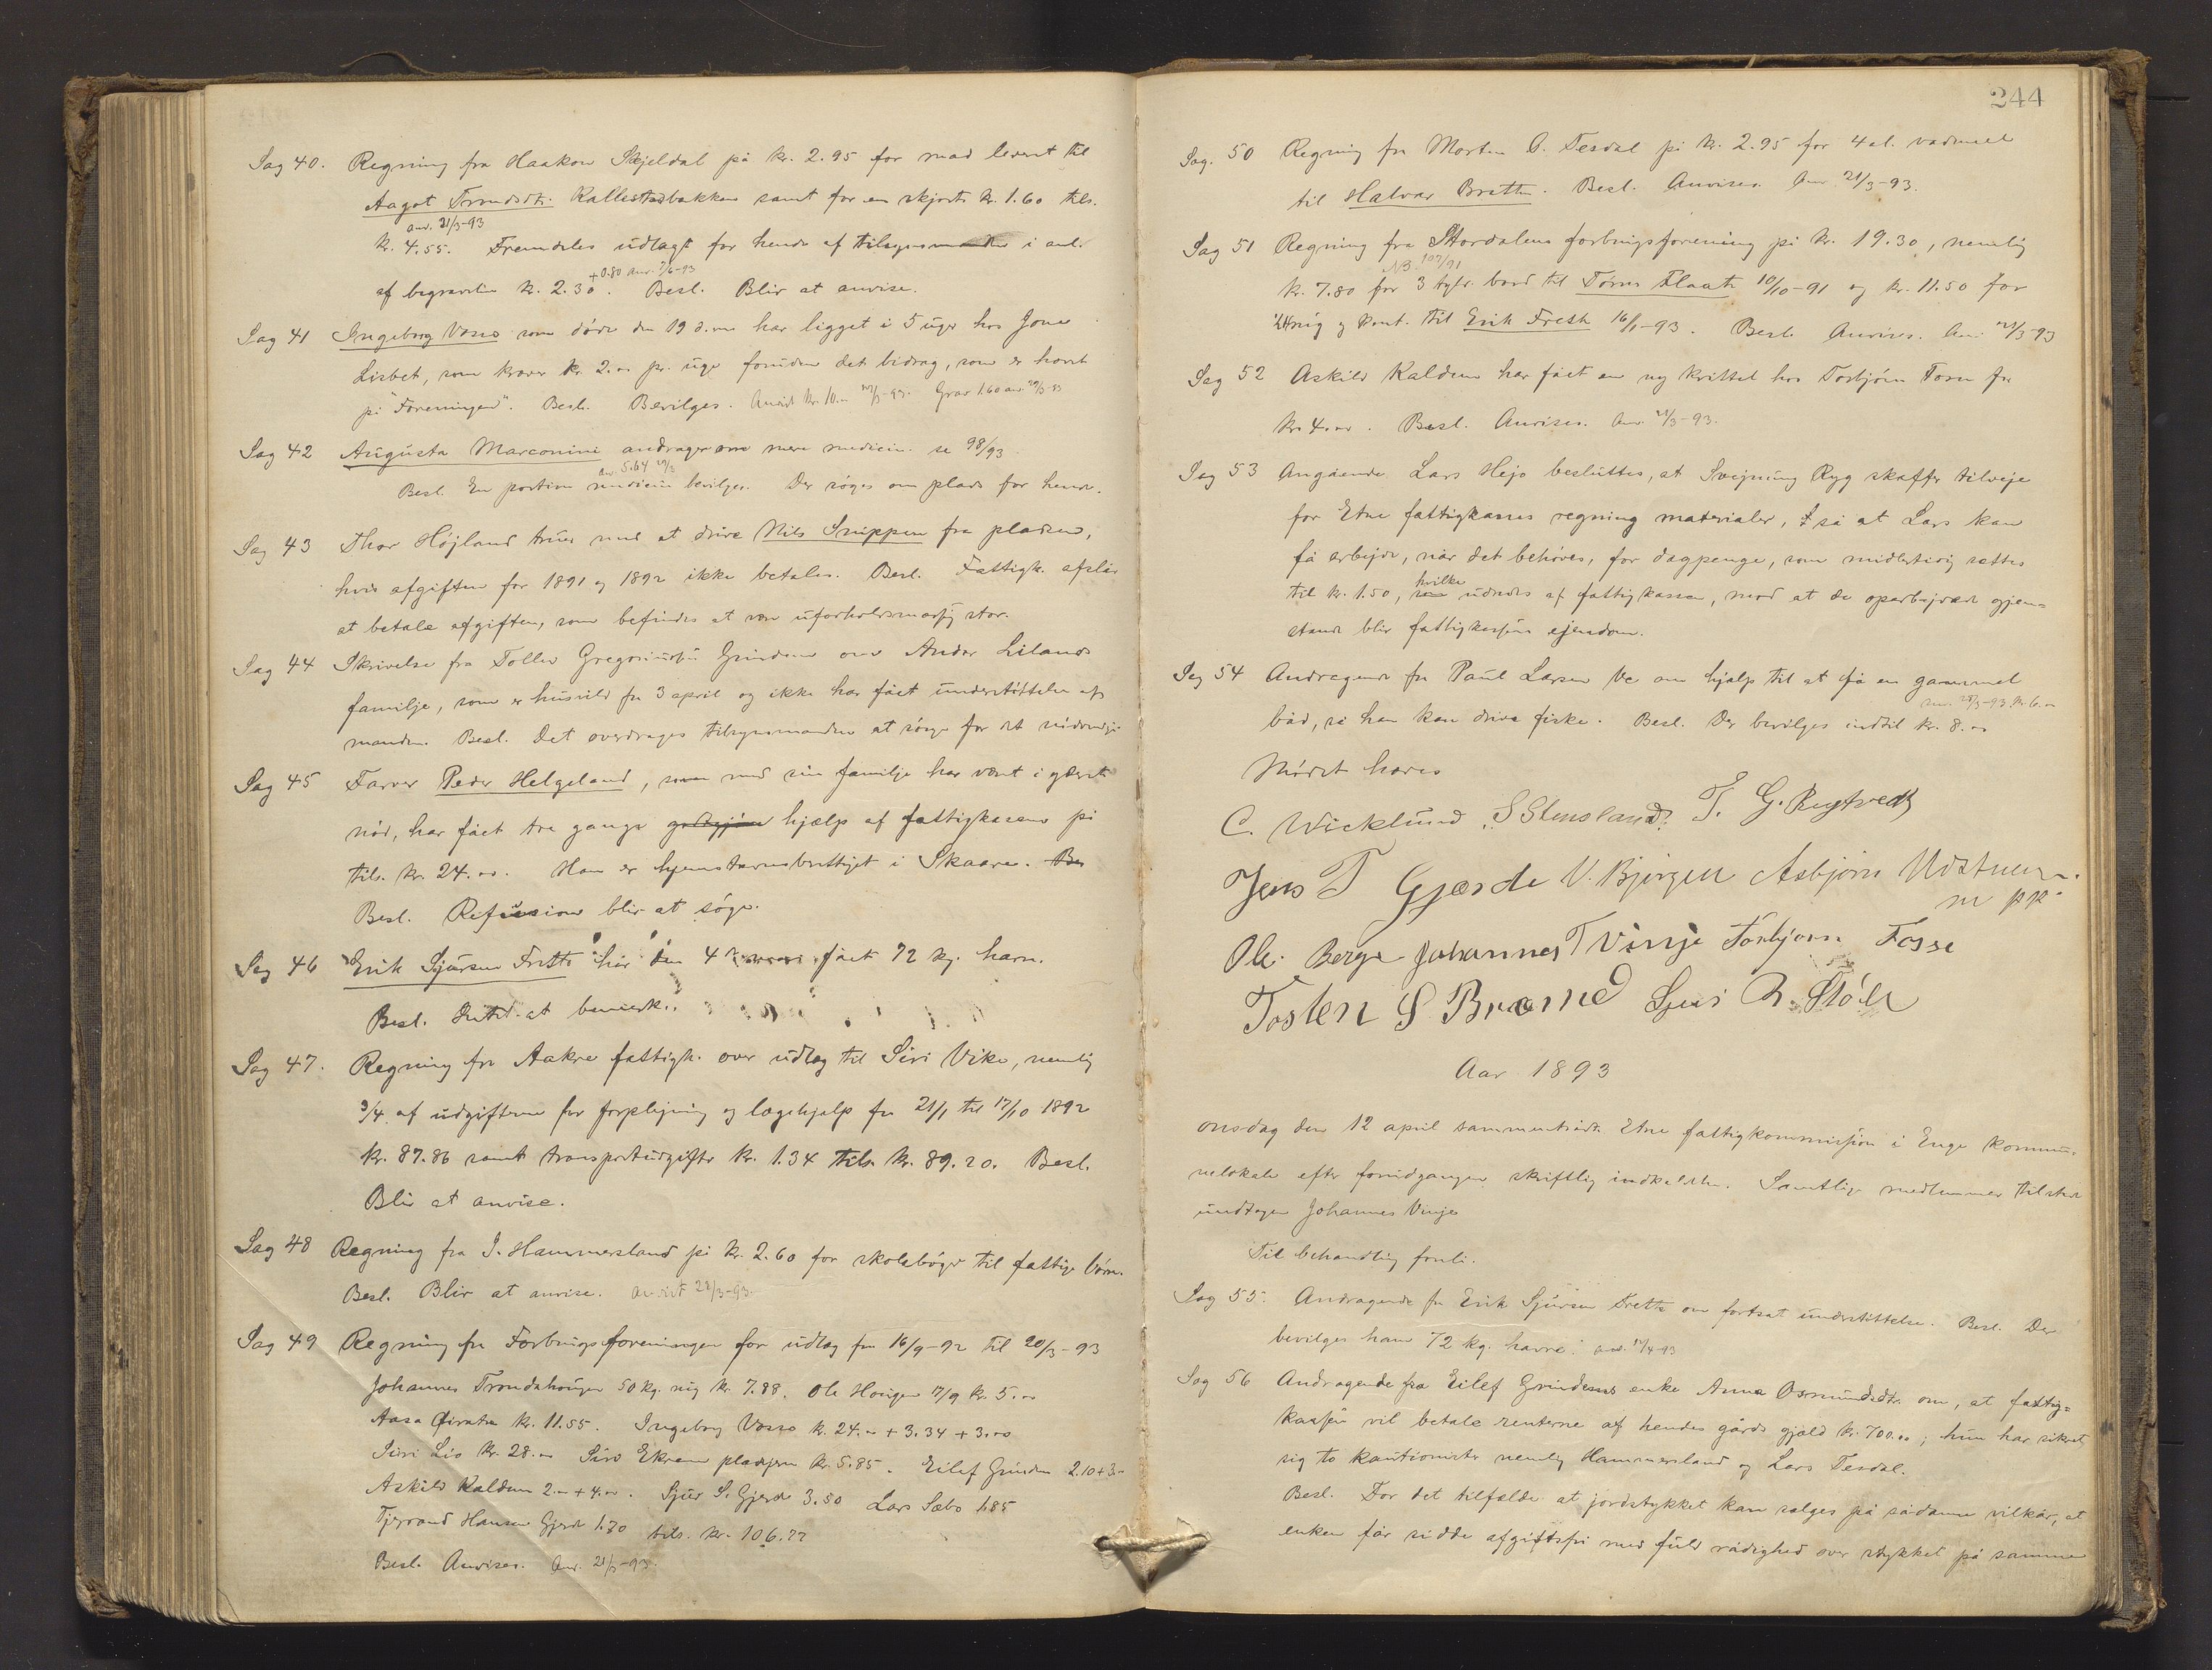 Sag 40. Regning fra Haakon Skjeldal på kr. 2.95 for mad leveret til
Aagot Trondsdtr. Kallestadbakken samt for en skjorte kr. 1.60 tils.
anv. 21/3-93
kr. 4.55. Fremdeles udlagt for hende af tilsynsmanden i anl.
+0.80 anv. 7/6-93
af begravelse kr. 2.30. Besl. Blir at anvise.
Sag 41 Ingeborg Vosso som døde den 19 d.m. har ligget i 5 uger hos Jone
Lisbet, som kræver kr. 2.00 pr. uge foruden det bidrag, som er hævet
på "Foreningen". Besl. Bevilges. Anvist kr. 10.00 21/3-93. Grav 1.60 anv. 29/3-93
Sag 42 Augusta Marconini andrager om mere medicin. se 98/93.
anv. 5.64 29/3
Besl. En portion medicin bevilges. Der søges om plads for hende.
Sag 43 Thor Højland truer med at drive Nils Snippen fra pladsen,
hvis afgiften for 1891 og 1892 ikke betales. Besl. Fattigk. afslår
at betale afgiften, som befindes at være uforholdsmæssig stor.
Sag 44 Skrivelse fra Tollev Gregoriussen Grindem om Andor Lilands
familje, som er husvild fra 3 april og ikke har fået understøttelse af
manden. Besl. Det overdrages tilsynsmanden at sørge for det nødvendige.
Sag 45 Farver Peder Helgeland, som med sin familje har været i yderste
nød, har fået tre gange godtgjør hjælp af fattigkassen på
tils. kr. 24.00. Han er hjemstavnsberettiget i Skaare. Bes
Besl. Refusion blir at søge.
Sag 46 Erik Sjursen Frette har den 4 fået 72 kg. havre.
Besl. Intet at bemærke.
Sag 47. Regning fra Aakre fattigk. over udlæg til Siri Vike, nemlig
3/4 af udgifterne for forplejning og lægehjælp fra 21/1 til 17/10 1892
kr. 87.86 samt transportudgifter kr. 1.34 tils. kr. 89.20. Besl.
Blir at anvise.
Sag 48 Regning fra J. Hammersland på kr. 2.60 for skolebøger til fattige børn.
Besl. Blir at anvise. anvist 28/3-93
Sag 49 Regning fra Forbrugsforeningen for udlæg fra 16/9-92 til 20/3-93
Johannes Trondshougen 50 kg. rug kr. 7.88. Ole Hougen 7/9 kr. 5.00
Aasa kr. 11.55. Ingeborg Vosso kr. 24.00 + 3.34 + 3.00
Siri Lio kr. 28.00 Siri Ekrene pladsjern kr. 5.85. Eilef Grindem 2.10+3.00
Askild Kaldem 2.00 + 4.00. Sjur S. Gjerde 3.50 Lars Sæbø 1.85
Tjerrand Hansen Gjerde 1.70 tils. kr. 106.77
Besl. Anvises. Anv. 21/3-93.
244
Sag. 50 Regning fra Morten O. Tesdal på kr. 2.95 for 4 al. vadmel
til Halvar Bratte. Besl. Anvises. Anv. 21/3-93.
Sag 51 Regning fra Stordalens forbrugsforening på kr. 19.30, nemlig
NB. 107/91
kr. 7.80 for 3 tylv. bord til Tørres Flaate 10/10-91 og kr. 11.50 for
rug og kont. til Erik Frette 16/1-93. Besl. Anvises. Anv. 21/3-93
Sag 52 Askild Kaldem har fået en ny kvittel hos Torbjørn Torn for
kr. 4.00. Besl. Anvises. Anv. 21/3-93.
Sag 53 Angående Lars Hejo besluttes, at Svejnung Ryg skaffer tilveje
for Etne fattigkasses regning materialer, så at Lars kan
få arbejde, når det behøves, for dagpenge, som midlertidig sættes
til kr. 1.50, hvilke udredes af fattigkassen, mod at de oparbejdede gjen=
stande blir fattigkassens ejendom.
Sag 54 Andragende fra Paul Larsen Ve om hjælp til at få en gammel
anv. 28/3-93. kr. 6.00
båd, så han kan drive fiske. Besl. Der bevilges indtil kr. 8.00
Mødet hæves
C. Wicklund S Stensland. T. G. Rygtvedt
Jens T Gjærde V. Bjørgen Asbjørn Udstuen
m pp.
Ole Berge Johannes T Vinje Torbjørn Fosse
Tosten S Brænne Sjur R. Støle
Aar 1893
onsdag den 12 april sammentrådte Etne fattigkommission i Enge kommu=
nelokale efter forudgangen skriftlig indkaldelse. Samtlige medlemmer tilstede
undtagen Johannes Vinje
Til behandling forelå.
Sag 55. Andragende fra Erik Sjursen Frette om fortsat understøttelse. Besl. Der
bevilges ham 72 kg. havre. anv. 12/4-93
Sag 56 Andragende fra Eilef Grindems enke Anna Osmundsdtr. om, at fattig=
kassen vil betale renterne af hendes gårds gjæld kr. 700.00; hun har sikret
sig to kautionister nemlig Hammersland og Lars Tesdal.
Besl. For det tilfælde at jordstykket kan sælges på sådanne vilkår, at
enken får sidde afgiftsfri med fuld rådighed over stykket på samme